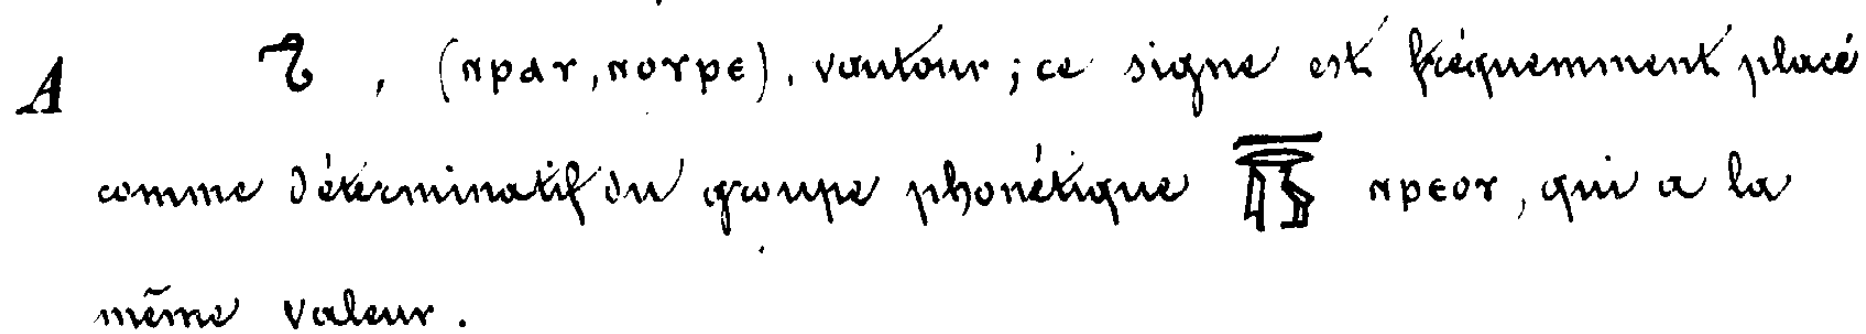 A , (ⲛⲣⲁⲩ, ⲛⲟⲩⲣⲉ), vautour; ce signe est fréquemment placé
comme déterminatif du groupe phonétique ⲛⲣⲉⲟⲩ, qui a la
même valeur.